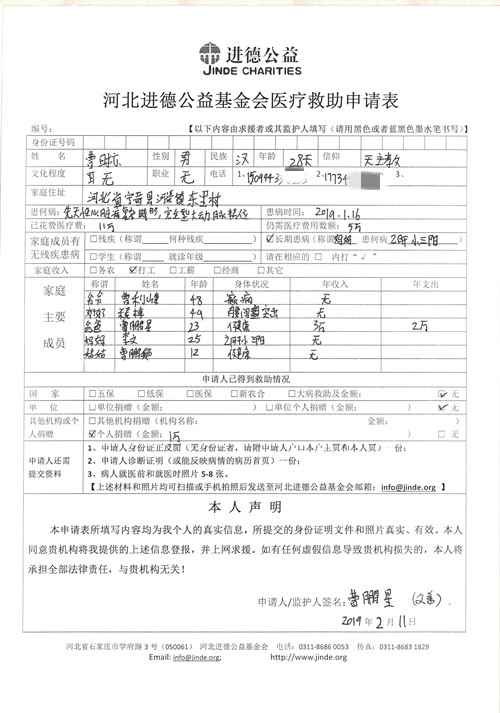 进德公益
JINDE CHARITIES
河北进德公益基金会医疗救助申请表
编号: 【以下内容由求援者或其监护人填写(请用黑色或者蓝黑色墨水笔书写)】
身份证号码
姓 名 曹 性别 男 民族 汉 年龄 28天 信仰 天主教
文化程度 无 职业 无 电话 1、 2、17734 3、
家庭住址 河北省宁晋县 村
患何病: 先天性心脏 完全型大动脉转位 患病时间: 2019.1.16
已花费医疗费: 11万 仍需医疗费用数额: 5万
家庭成员有无残疾患病 □残疾(称谓 何种残疾 ) ☑长期患病(称谓 妈妈 患何病 乙肝小三阳
□学生(称谓 就读年级 ) 请在相应的 □ 内打“√”
家庭收入 □务农 ☑打工 □工薪 □经商 □其它
家庭主要成员 称谓 姓名 年龄 身体状况 年收入 年支出
爷爷 曹利 48 无
奶奶 49 腰间盘突出 无
爸爸 曹鹏星 23 健康 3万 2万
妈妈 李 25 乙肝小三阳 无
姑姑 曹鹏 12 健康 无
申请人已得到救助情况
国 家 □五保 □低保 □医保 □新农合 □大病救助及金额: ☑无
单 位 □单位捐赠(金额: ) □单位个人捐赠(金额: ) ☑无
其他机构或个人捐赠 □其他机构捐赠(机构名称: 金额: )
☑个人捐赠(金额: 1万 ) □无
申请人还需提交资料 1、申请人身份证正反面(无身份证者,请附申请人户口本户主页和本人页)一份;
2、申请人诊断证明(或能反映病情的病历首页)一份;
3、病人就医前和就医时照片 5-8 张。
【上述材料和照片均可扫描或手机拍照后发送至河北进德公益基金会邮箱:info@jinde.org 】
本 人 声 明
本申请表所填写内容均为我个人的真实信息,所提交的身份证明文件和照片真实、有效。本人
同意贵机构将我提供的上述信息登报,并上网求援。如有任何虚假信息导致贵机构损失的,本人将
承担全部法律责任,与贵机构无关!
申请人/监护人签名: 曹鹏星 (父亲)
2019 年 2 月 11 日
河北省石家庄市学府路 3 号(050061) 河北进德公益基金会 电话:0311-8686 0053 传真:0311-8683 1829
Email: info@jinde.org; http://www.jinde.org